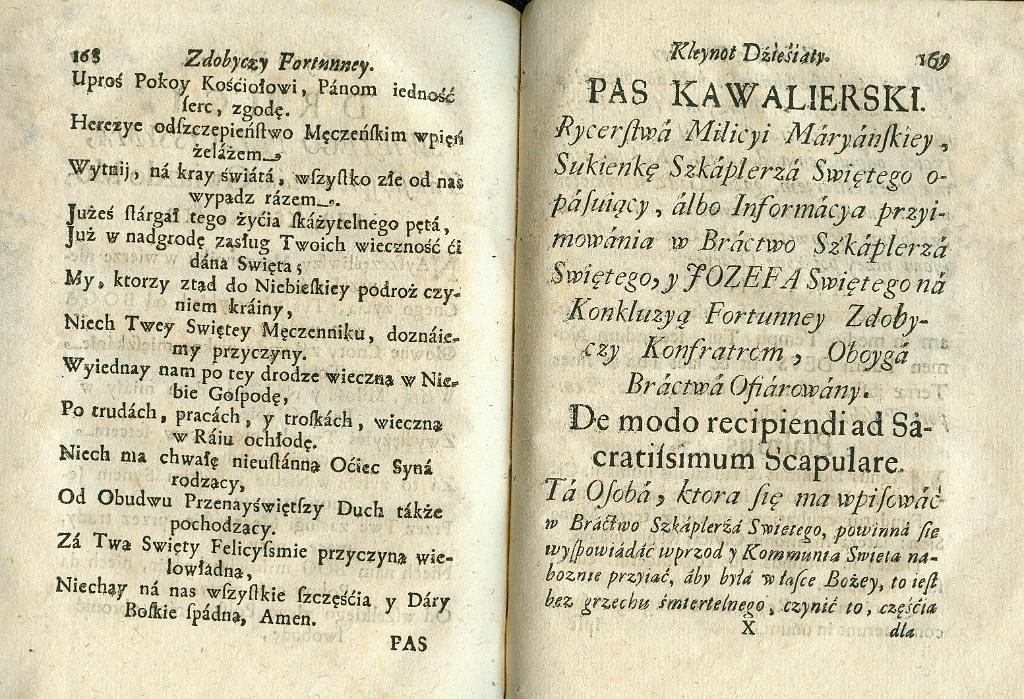 168 Zdobyczy Fortunney.
Uproś Pokoy Kośćiołowi, Pánom iedność
ſerc, zgodę.
Herezye odſzczepieńſtwo Męczeńſkim wpięń
żelázem,
Wytnij, ná kray świátá, wſzyſtko złe od nas
wypądz rázem.
Jużeś ſtárgał tego żyćia ſkáżytelnego pętá,
Już w nadgrodę zasług Twoich wieczność ći
dána Swięta;
My, ktorzy ztąd do Niebieſkiey podroż czy-
niem kráiny,
Niech Twey Swiętey Męczenniku, doznáie-
my przyczyny.
Wyiednay nam po tey drodze wieczną w Nie-
bie Goſpodę,
Po trudách, pracách, y troſkách, wieczną
w Ráiu ochłodę.
Niech ma chwałę nieuſtánną Oćiec Syná
rodzący,
Od Obudwu Przenayświętſzy Duch tákże
pochodzący.
Zá Twą Swięty Felicyſsmie przyczyną wie-
lowładną,
Niechay ná nas wſzyſtkie ſzczęśćia y Dáry
Boſkie ſpádną, Amen.
PAS
Kleynot Dźieśiąty. 169
PAS KAWALIERSKI.
Rycerſtwá Milicyi Máryáńſkiey,
Sukienkę Szkáplerzá Swiętego o-
páſuiący, álbo Informácya przyi-
mowánia w Bráctwo Szkáplerzá
Swiętego, y JOZEFA Swiętego ná
Konkluzyą Fortunney Zdoby-
czy Konfratrom, Oboygá
Bráctwá Ofiárowány.
De modo recipiendi ad Sá-
cratiſsimum Scapulare.
Tá Oſobá, ktora ſię ma wpiſowáć
w Bráctwo Szkáplerzá Swietego, powinná ſie
wyſpowiádáć wprzod y Kommunią Swietą na-
bożnie przyiąć, áby byłá w łaſce Bożey, to ieſt
bez grzechu śmiertelnego, czynić to, częśćią
X dla